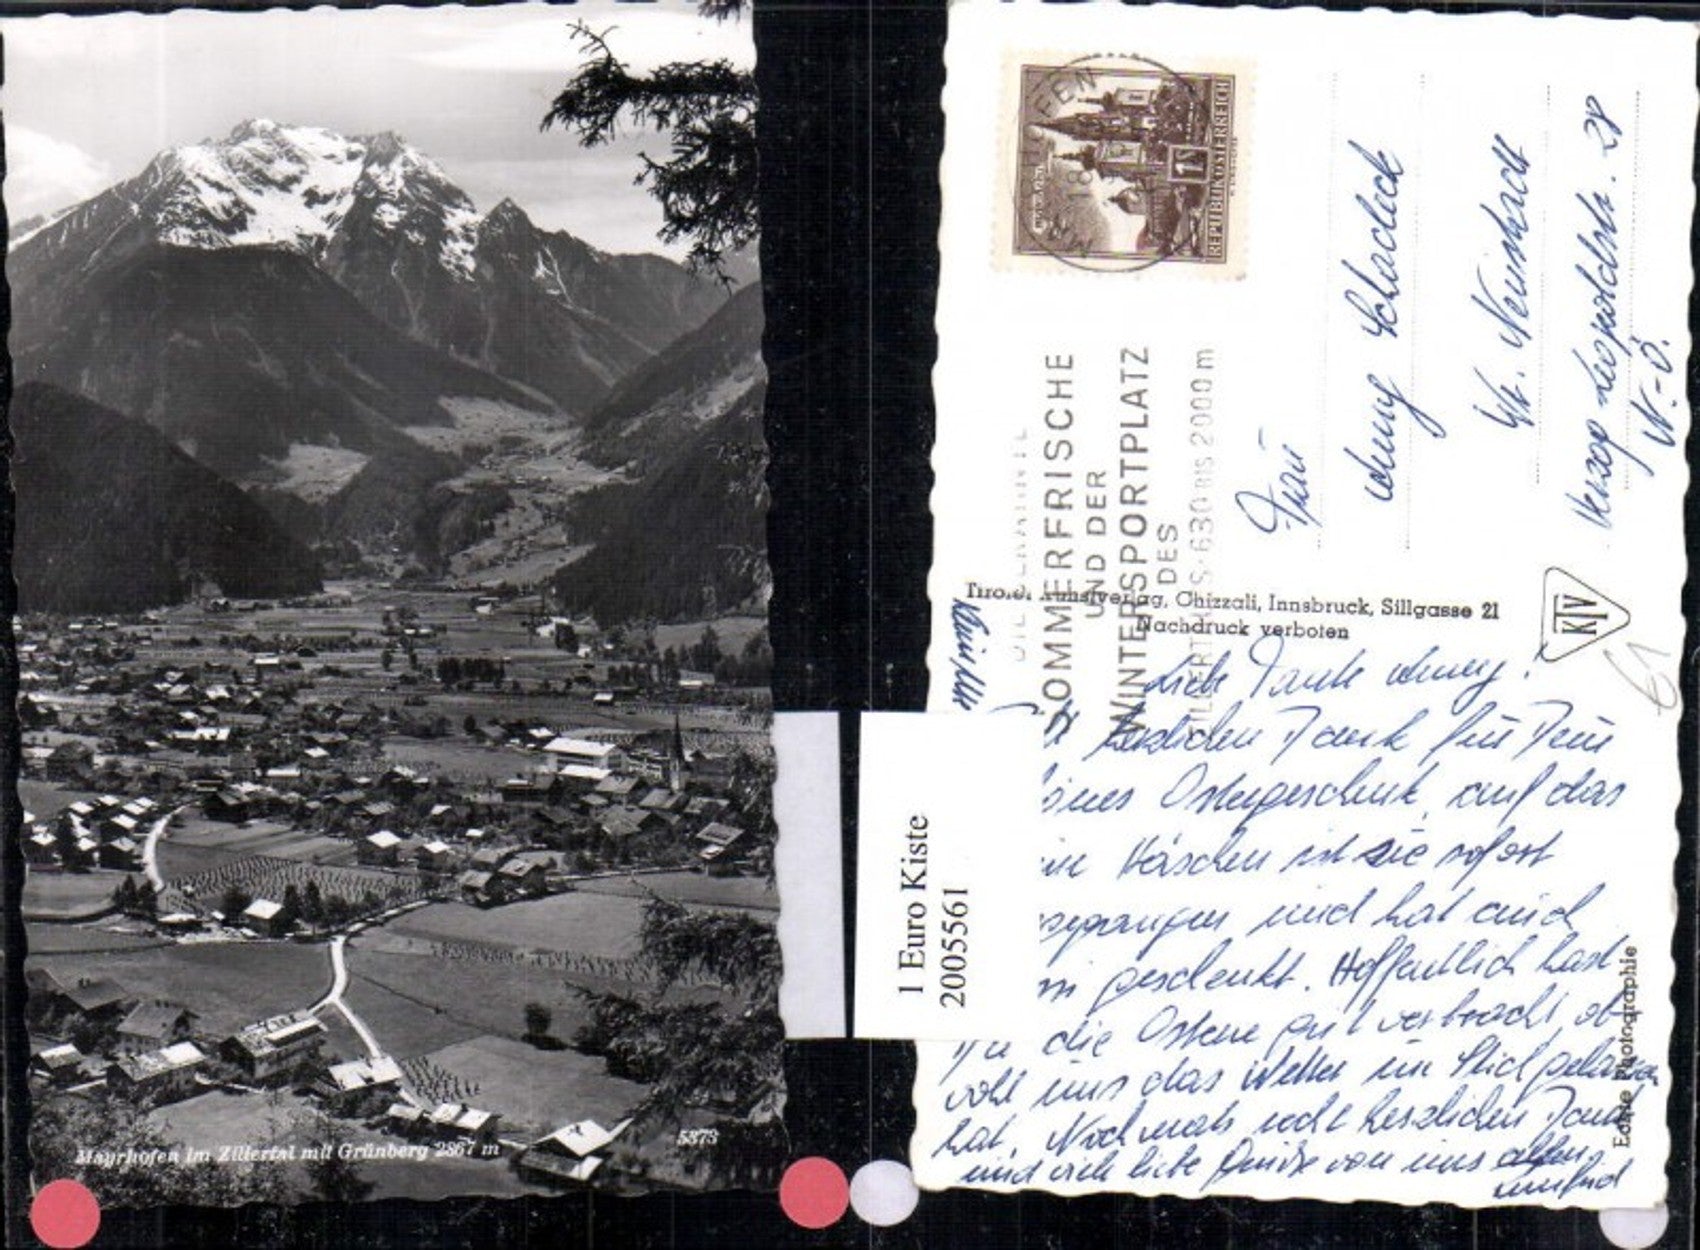 Mayrhofen im Zillertal mit Grünberg 2867 m
5373
1 Euro Kiste
2005561
REPUBLIK ÖSTERREICH
SOMMERFRISCHE
UND DER
WINTERSPORTPLATZ
DES
630 BIS 2000 m
Frau
Schadeck
Wr. Neustadt
Herzog Leopoldstr. 28
N.-Ö.
Tiroler Kunstverlag, Chizzali, Innsbruck, Sillgasse 21
Nachdruck verboten
KTV
€1
Liebe Tante
herzlichen Dank für Dein
Ostergeschenk, auf das
Häschen ist sie sofort
und hat auch
geschenkt. Hoffentlich hast
Du die Ostern gut verbracht, ob-
wohl uns das Wetter im Stich gelassen
hat. Nochmals recht herzlichen Dank
und viele liebe Grüße von uns allen
Echte Photographie